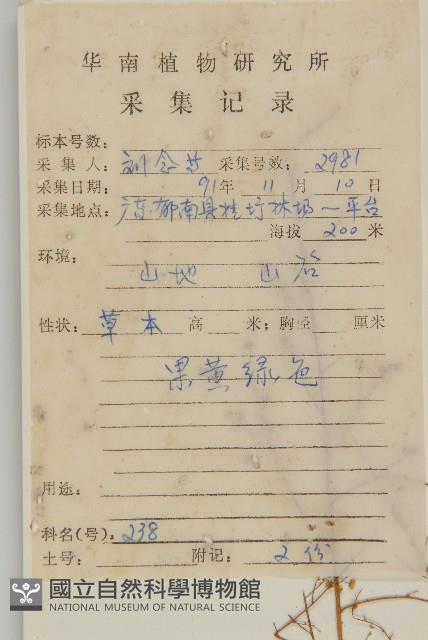 华南植物研究所
采集记录
标本号数：
采集人：刘念 采集号数：2981
采集日期：91年11月10日
采集地点：广东郁南县桂圩林场一平台
海拔200米
环境：
山地 山谷
性状：草本 高 米；胸径 厘米
果黄绿色
用途：
科名(号)：238
土号： 附记：2份
國立自然科學博物館
NATIONAL MUSEUM OF NATURAL SCIENCE